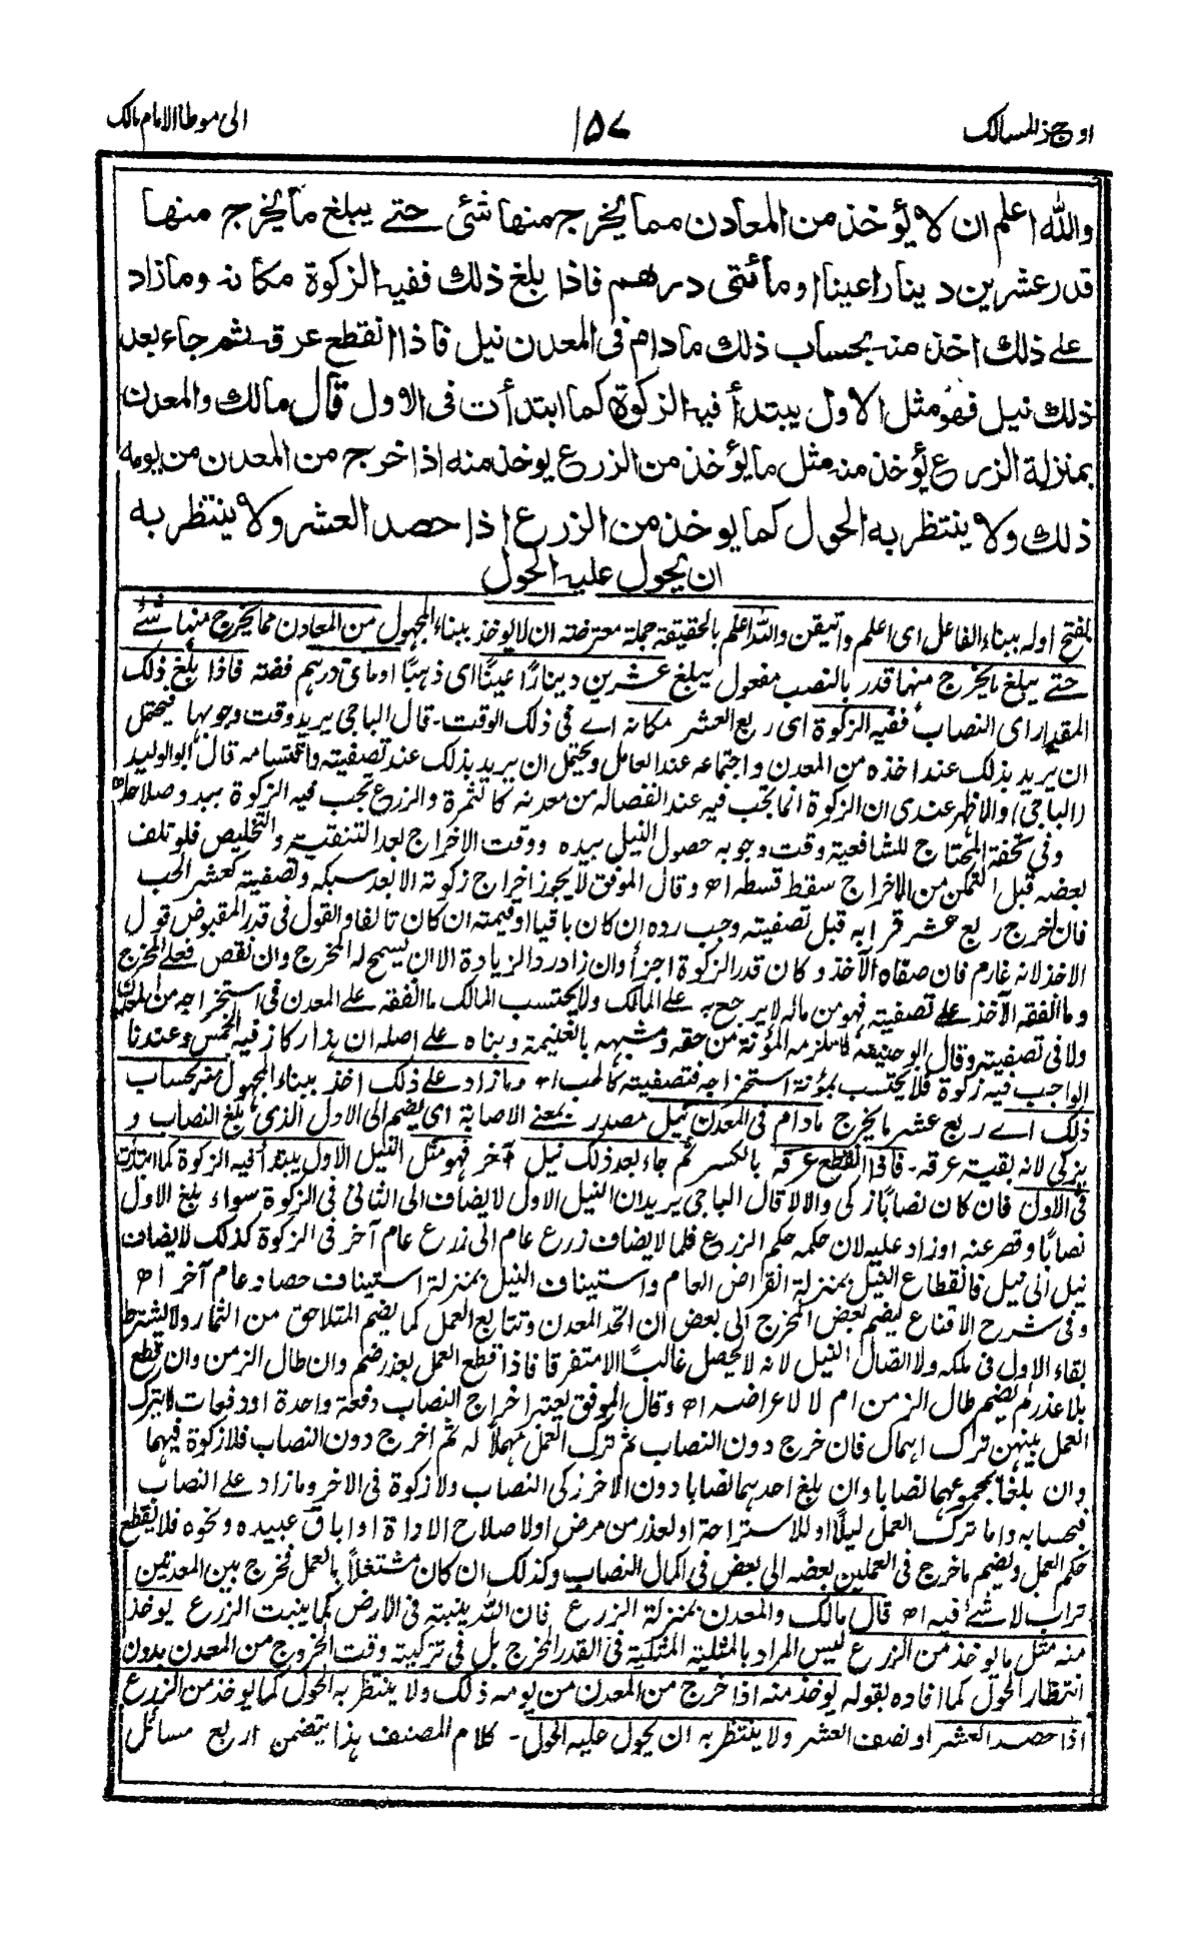 اوجز المسالك
١٥٧
الى موطا الامام مالك
والله اعلم ان لا يؤخذ من المعادن مما يخرج منها شئى حتے يبلغ ما يخرج منها
قدر عشرين دينارا عينا او مأئتى درهم فاذا بلغ ذلك ففيه الزكوة مكانه وما زاد
علے ذلك اخذ منه بحساب ذلك ما دام فى المعدن نيل فاذا انقطع عرقه ثم جاء بعد
ذلك نيل فهو مثل الاول يبتدأ فيه الزكوة كما ابتدأت فى الاول قال مالك والمعدن
بمنزلة الزرع يؤخذ منه مثل ما يؤخذ من الزرع يوخذ منه اذا خرج من المعدن من يومه
ذلك ولا ينتظر به الحول كما يوخذ من الزرع اذا حصد العشر ولا ينتظر به
ان يحول عليه الحول
بفتح اوله ببناء الفاعل اى اعلم واتيقن والله اعلم بالحقيقة جملة معترضة ان لا يوخذ ببناء المجهول من المعادن مما يخرج منها شئے
حتے يبلغ ما يخرج منها قدر بالنصب مفعول يبلغ عشرين دينارًا عينًا اى ذهبًا او مائى درهم فضة فاذا بلغ ذلك
المقدار اى النصاب ففيه الزكوة اى ربع العشر مكانه اے فى ذلك الوقت۔ قال الباجى يريد وقت وجوبها فيحتمل
ان يريد بذلك عند اخذه من المعدن واجتماعه عند العامل ويحتمل ان يريد بذلك عند تصفيته واقتسامه قال ابو الوليد
(الباجى) والاظهر عندى ان الزكوة انما تجب فيه عند انفصاله من معدنه كالثمرة والزرع تجب فيه الزكوة ببدو صلاحه اھ
وفى تحفة المحتاج للشافعية وقت وجوبه حصول النيل بيده ووقت الاخراج بعد التنقية والتخليص فلو تلف
بعضه قبل التمكن من الاخراج سقط قسطه اھ وقال الموفق لا يجوز اخراج زكوته الا بعد سبكه وتصفيته كعشر الحب
فان اخرج ربع عشر ترابه قبل تصفيته وجب رده ان كان باقيا او قيمته ان كان تالفا والقول فى قدر المقبوض قول
الاخذ لانه غارم فان صفاه الآخذ وكان قدر الزكوة اجزأ وان زاد رد الزيادة الا ان يسمح له المخرج وان نقص فعلے المخرج
وما انفقه الآخذ علے تصفيته فهو من ماله لا يرجع به علے المالك ولا يحتسب المالك ما انفقه علے المعدن فى استخراجه من المعدن
ولا فى تصفيته وقال ابو حنيفة لا تلزمه المؤنة من حقه وشبهه بالغنيمة وبناه علے اصله ان هذا ركاز فيه الخمس وعندنا
الواجب فيه زكوة فلا يحتسب بمؤنة استخراجه فتصفيته كالحب اھ وما زاد علے ذلك اخذ ببناء المجهول منه بحساب
ذلك اے ربع عشر ما يخرج مادام فى المعدن نيل مصدر بمعنے الاصابة اى يضم الى الاول الذى بلغ النصاب و
يزكى لانه بقية عرقه۔ فاذا انقطع عرقه بالكسر ثم جاء بعد ذلك نيل آخر فهو مثل النيل الاول يبتدأ فيه الزكوة كما ابتدئت
فى الاول فان كان نصابًا زكى والا لا قال الباجى يريد ان النيل الاول لا يضاف الى الثانى فى الزكوة سواء بلغ الاول
نصابا وقصر عنه او زاد عليه لان حكمه حكم الزرع فلما لا يضاف زرع عام الى زرع عام آخر فى الزكوة كذلك لا يضاف
نيل الى نيل فانقطاع النيل بمنزلة انقراض العام واستيناف النيل بمنزلة استيناف حصاد عام آخر اھ
وفى شرح الاقناع يضم بعض المخرج الى بعض ان اتحد المعدن وتتابع العمل كما يضم المتلاحق من الثمار ولا يشترط
بقاء الاول فى ملكه ولا اتصال النيل لانه لا يحصل غالبًا الا متفرقا فاذا قطع العمل بعذر ضم وان طال الزمن وان قطع
بلا عذر لم يضم طال الزمن ام لا لاعراضه اھ وقال الموفق يعتبر اخراج النصاب دفعة واحدة او دفعات لا يترك
العمل بينهن ترك اهمال فان خرج دون النصاب ثم ترك العمل مهملًا له ثم اخرج دون النصاب فلا زكوة فيهما
وان بلغا بمجموعهما نصابا وان بلغ احدهما نصابا دون الاخر زكى النصاب ولا زكوة فى الاخر وما زاد علے النصاب
فبحسابه واما ترك العمل ليلًا او للاستراحة او لعذر من مرض او لاصلاح الاداة او اباق عبيده ونحوه فلا يقطع
حكم العمل ويضم ما خرج فى العملين بعضه الى بعض فى اكمال النصاب وكذلك ان كان مشتغلًا بالعمل فخرج بين المعدنين
تراب لا شئے فيه اھ قال مالك والمعدن بمنزلة الزرع فان الله ينبته فى الارض كما ينبت الزرع يوخذ
منه مثل ما يوخذ من الزرع ليس المراد بالمثلية المثلية فى القدر المخرج بل فى تزكيته وقت الخروج من المعدن بدون
انتظار الحول كما افاده بقوله يوخذ منه اذا خرج من المعدن من يومه ذلك ولا ينتظر به الحول كما يوخذ من الزرع
اذا حصد العشر او نصف العشر ولا ينتظر به ان يحول عليه الحول۔ كلام المصنف هذا يتضمن اربع مسائل